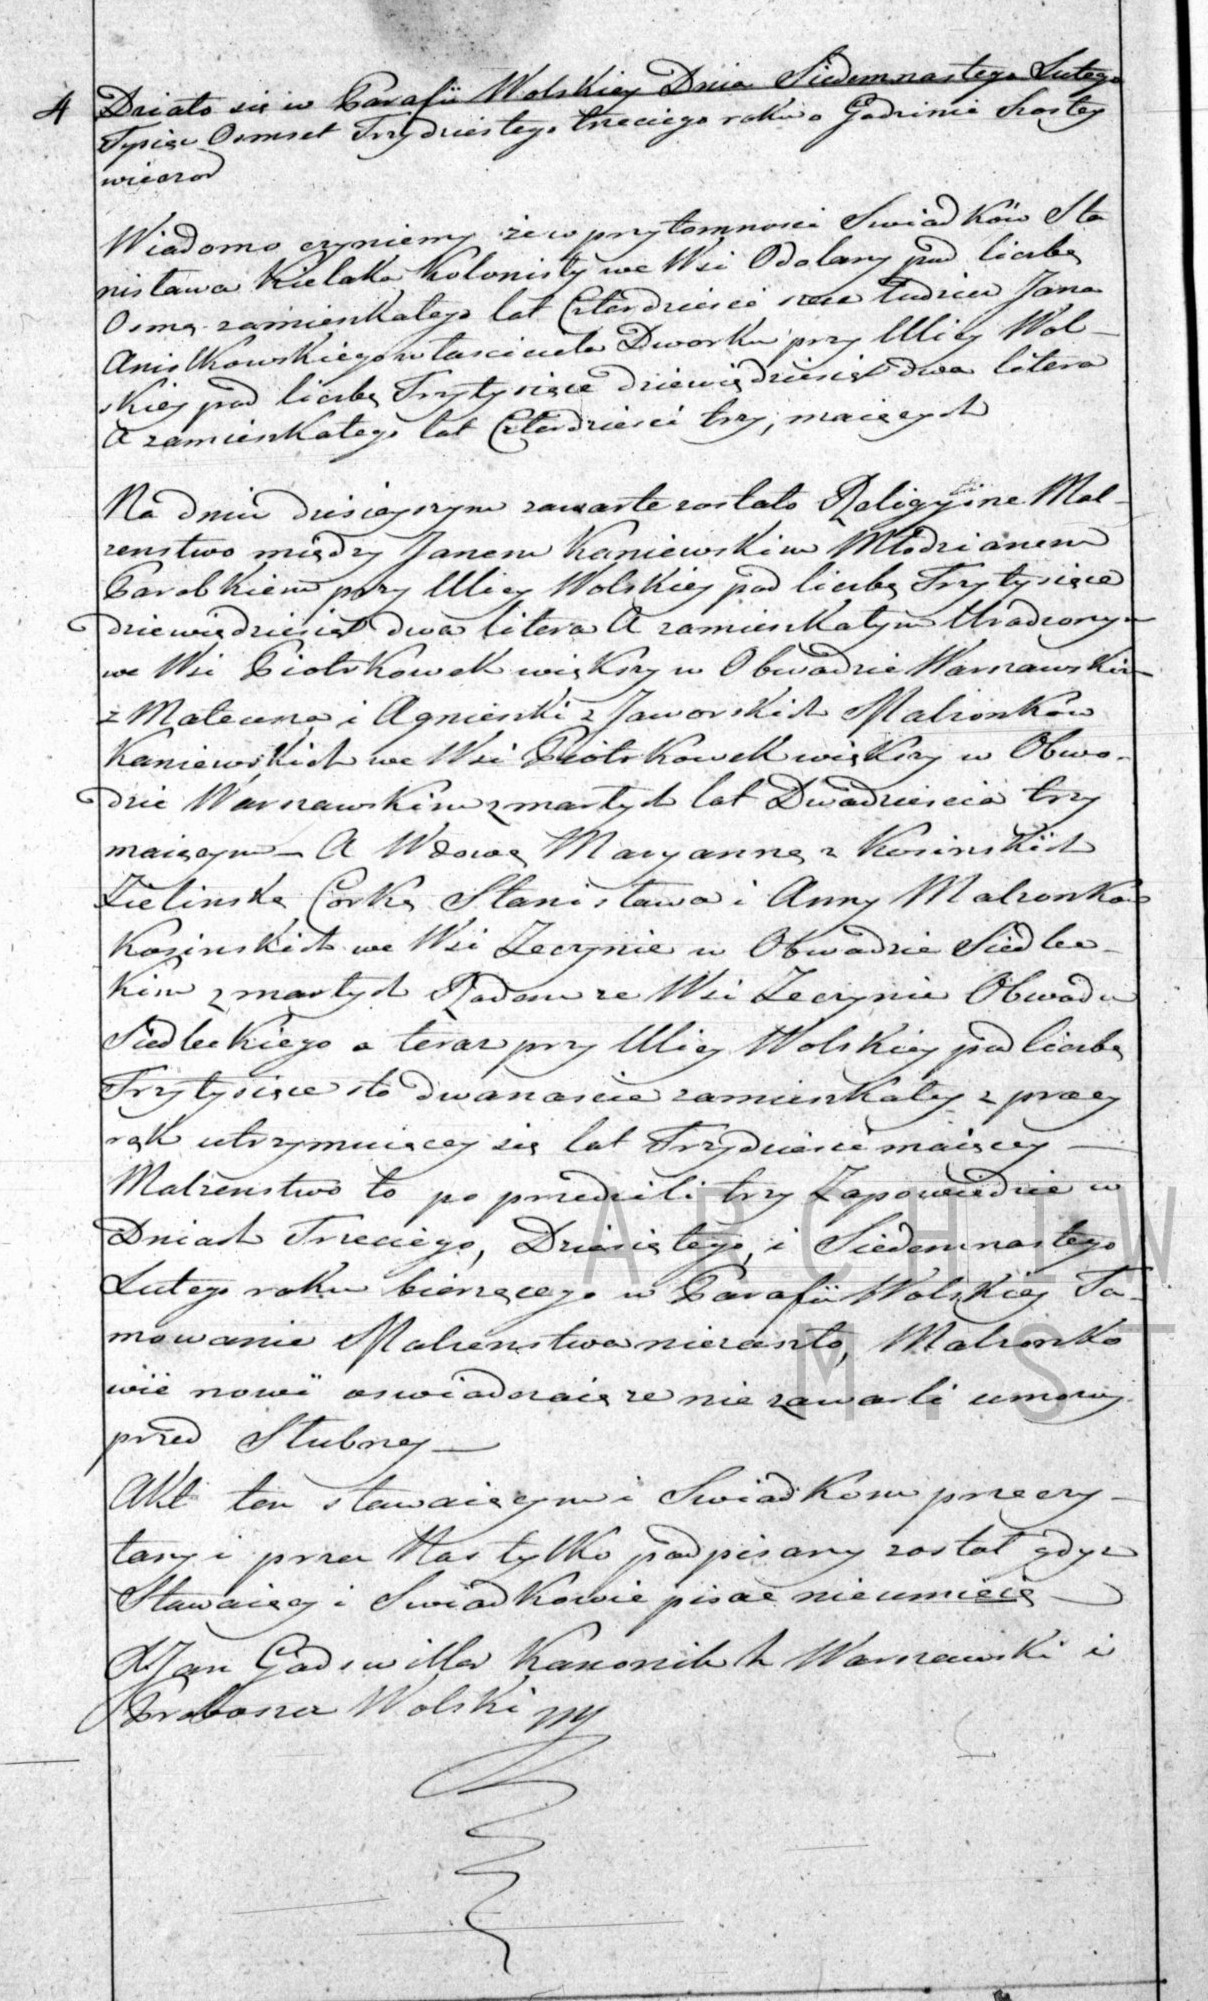 4 Działo się w Parafii Wolskiey Dnia Siedemnastego Lutego
Tysiąc Osmset Trzydziestego trzeciego roku o Godzinie Szostey
wieczor
Wiadomo czyniemy że w przytomnosci Swiadków Sta
nisława Kielaka, Kolonisty we Wsi Odolany pod liczbą
Osmą zamieszkałego lat Czterdziesci szesc tudziesz Jana
własciciela Dworku przy Ulicy Wol-
skiey pod liczbą Trzytysiące dziewiędziesiąt dwa litera
A zamieszkałego lat Czterdziesci trzy, maiących
Na dniu dzisieyszym zawarte zostało Religyine Mał-
zenstwo między Janem Kaniewskim Młodzianem
Parobkiem przy Ulicy Wolskiey pod liczbą Trzytysiące
dziewiędziesiąt dwa litera A zamieszkałym Urodzonym
we Wsi Piotrkowek większy w Obwodzie Warszawskim
z Mateusza i Agnieszki z Jaworskich Małzonków
Kaniewskich we Wsi Piotrkowek większy w Obwo-
dzie Warszawskim zmarłych lat Dwadziescia trzy
maiącym – A Wdową Maryanną z Kosinskich
Zielinską Corką Stanisława i Anny Małzonków
Kosinskich we Wsi Zeczynie w Obwodzie Siedlec-
kim zmarłych Rodem ze Wsi Zeczynie Obwodu
Siedleckiego a teraz przy Ulicy Wolskiey pod liczbą
Trzytysiące sto dwanascie zamieszkałey z pracy
rąk utrzymuiącey się lat Trzydziesci maiącey —
Malzenstwo to po przedzili trzy Zapowiedzie w
Dniach Trzeciego, Dziesiątego, i Siedemnastego
Lutego roku bierzącego w Parafii Wolskiey Ta-
mowanie Małzenstwa niezaszło, Małzonko
wie nowi oswiadczaią ze nie zawarli umowy
przed Slubney —
Akt ten stawaiącym i Swiadkom przeczy-
tany i przez Nas tylko podpisany został gdyz
Stawaiący i Swiadkowie pisac nieumieią —
X Jan Kanonik h Warszawski i
Proboszcz Wolski
ARCHIW
M ST